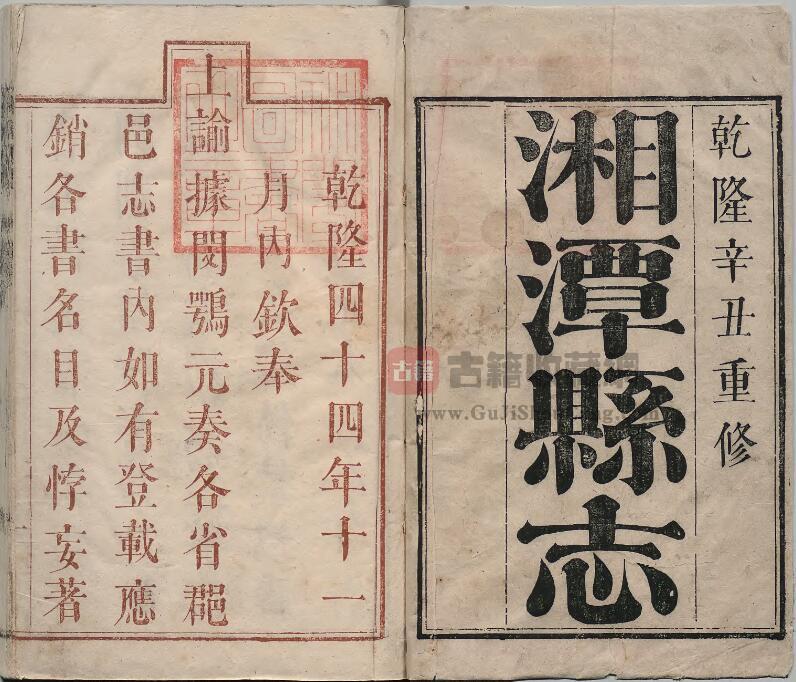 乾隆辛丑重修
湘潭縣志
乾隆四十四年十一
月內欽奉
上諭據閔鶚元奏各省郡
邑志書內如有登載應
銷各書名目及悖妄著
古籍
古籍收藏網